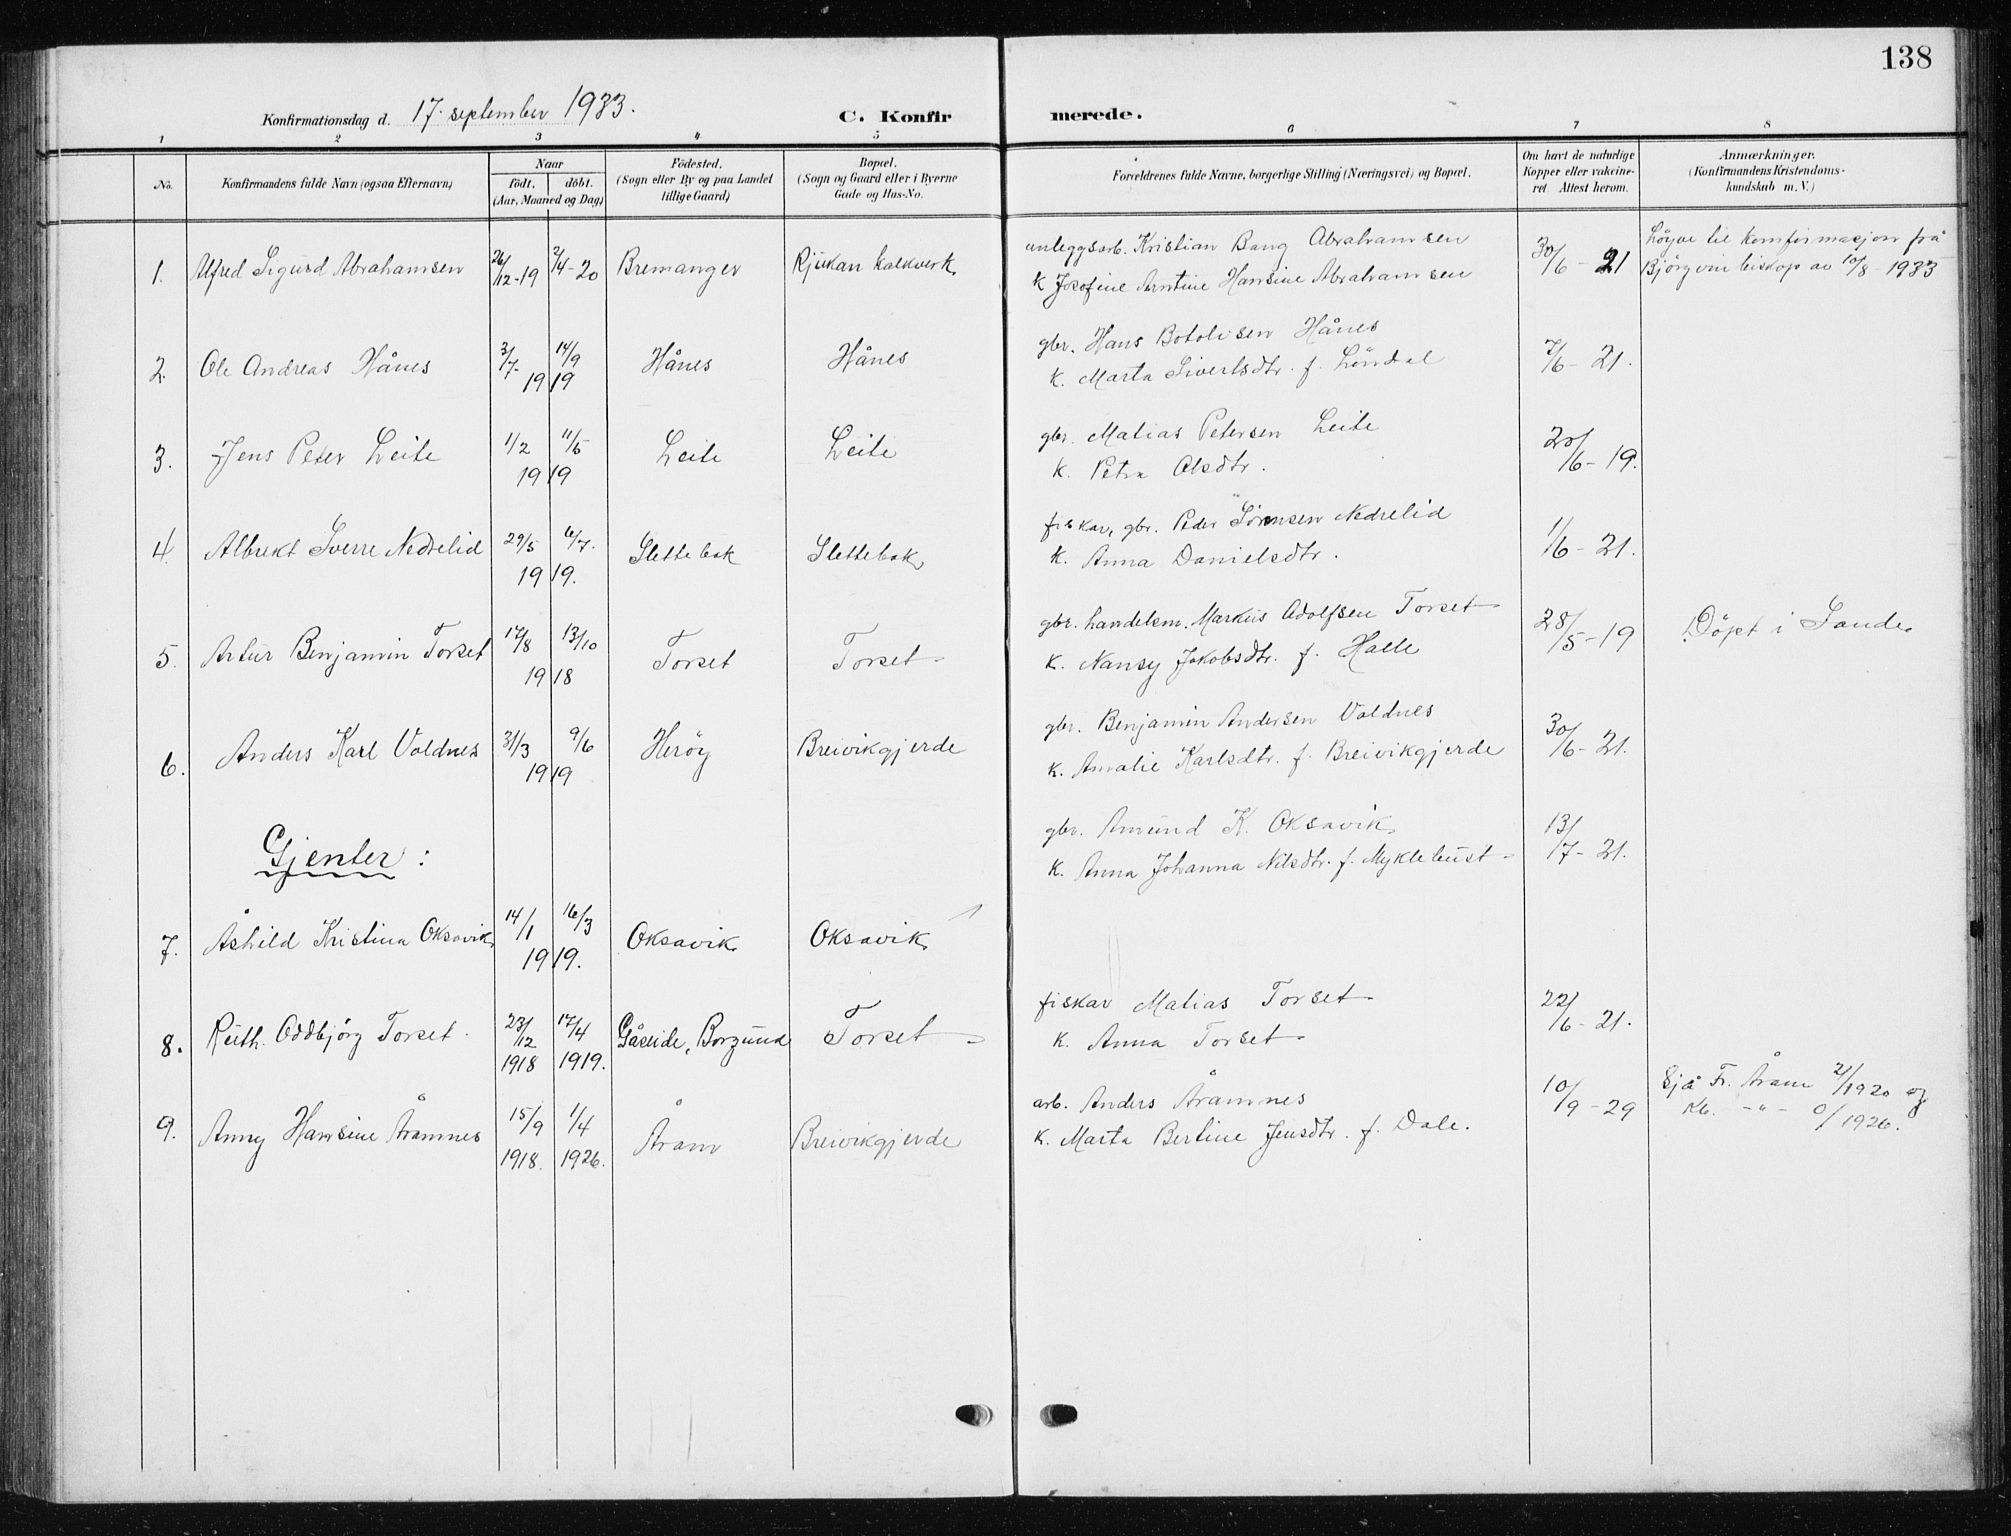 138
Konfirmationsdag d. 17. september 1933.
C. Konfirmerede.
1 2 3 4 5 6 7 8
No.
Konfirmandens fulde Navn (ogsaa Efternavn)
Naar
födt. döbt.
(Aar, Maaned og Dag)
Födested.
(Sogn eller By og paa Landet
tillige Gaard)
Bopæl.
(Sogn og Gaard eller i Byerne
Gade og Hus-No.
Forældrenes fulde Navne, borgerlige Stilling (Næringsvei) og Bopæl.
Om havt de naturlige
Kopper eller vakcine-
ret. Attest herom.
Anmærkninger.
(Konfirmandens Kristendoms-
kundskab m. V.)
1. Alfred Sigurd Abrahamsen 26/12-19 2/4-20 Bremanger Rjukan kalkverk
anleggsarb. Kristian Bang Abrahamsen
k Josefine Arntine Hansine Abrahamsen
30/6-21
Löyve til konfirmasjon frå
Björgvin biskop av 10/8-1933
2. Ole Andreas Hånes 3/7- 14/9 1919 Hånes Hånes
gbr. Hans Botolvsen Hånes
k. Marta Sivertsdtr. f. Löndal
7/6-21.
3. Jens Peter Leite 1/2 11/5 1919 Leite Leite
gbr. Matias Petersen Leite
k. Petra Olsdtr.
20/6-19.
4. Albrekt Sverre Nedrelid 29/5 6/7. 1919. Slettebak Slettebak
fiskar, gbr. Peder Sörensen Nedrelid
k. Anna Danielsdtr.
1/6-21.
5. Artur Benjamin Torset 17/8 13/10 1918 Torset Torset
gbr. handelsm. Markus Adolfsen Torset
k. Nansy Jakobsdtr. f. Halle
28/5-19
Döpt i Sande
6. Anders Karl Voldnes 31/3 9/6 1919 Heröy Breivikgjerde
gbr. Benjamin Andersen Voldnes
k. Amalie Karlsdtr. f. Breivikgjerde
30/6-21.
Gjenter:
gbr. Amund K. Oksavik
k. Anna Johanna Nilsdtr. f. Myklebust
13/7-21.
7. Åshild Kristina Oksavik 14/1 16/3 1919. Oksavik Oksavik
8. Ruth Oddbjörg Torset 23/12 1918 17/4 1919. Gåseide, Borgund Torset
fiskar Matias Torset
k. Anna Torset
22/6-21.
9. Anny Hansine Åramnes 15/9 1918. 1/4 1926. Åram Breivikgjerde
arb. Anders Åramnes
k. Marta Bertine Jensdtr. f. Dale.
10/9-29
Sjå Fr. Åram 21/1920 og
Kl. -"- 0/1926.